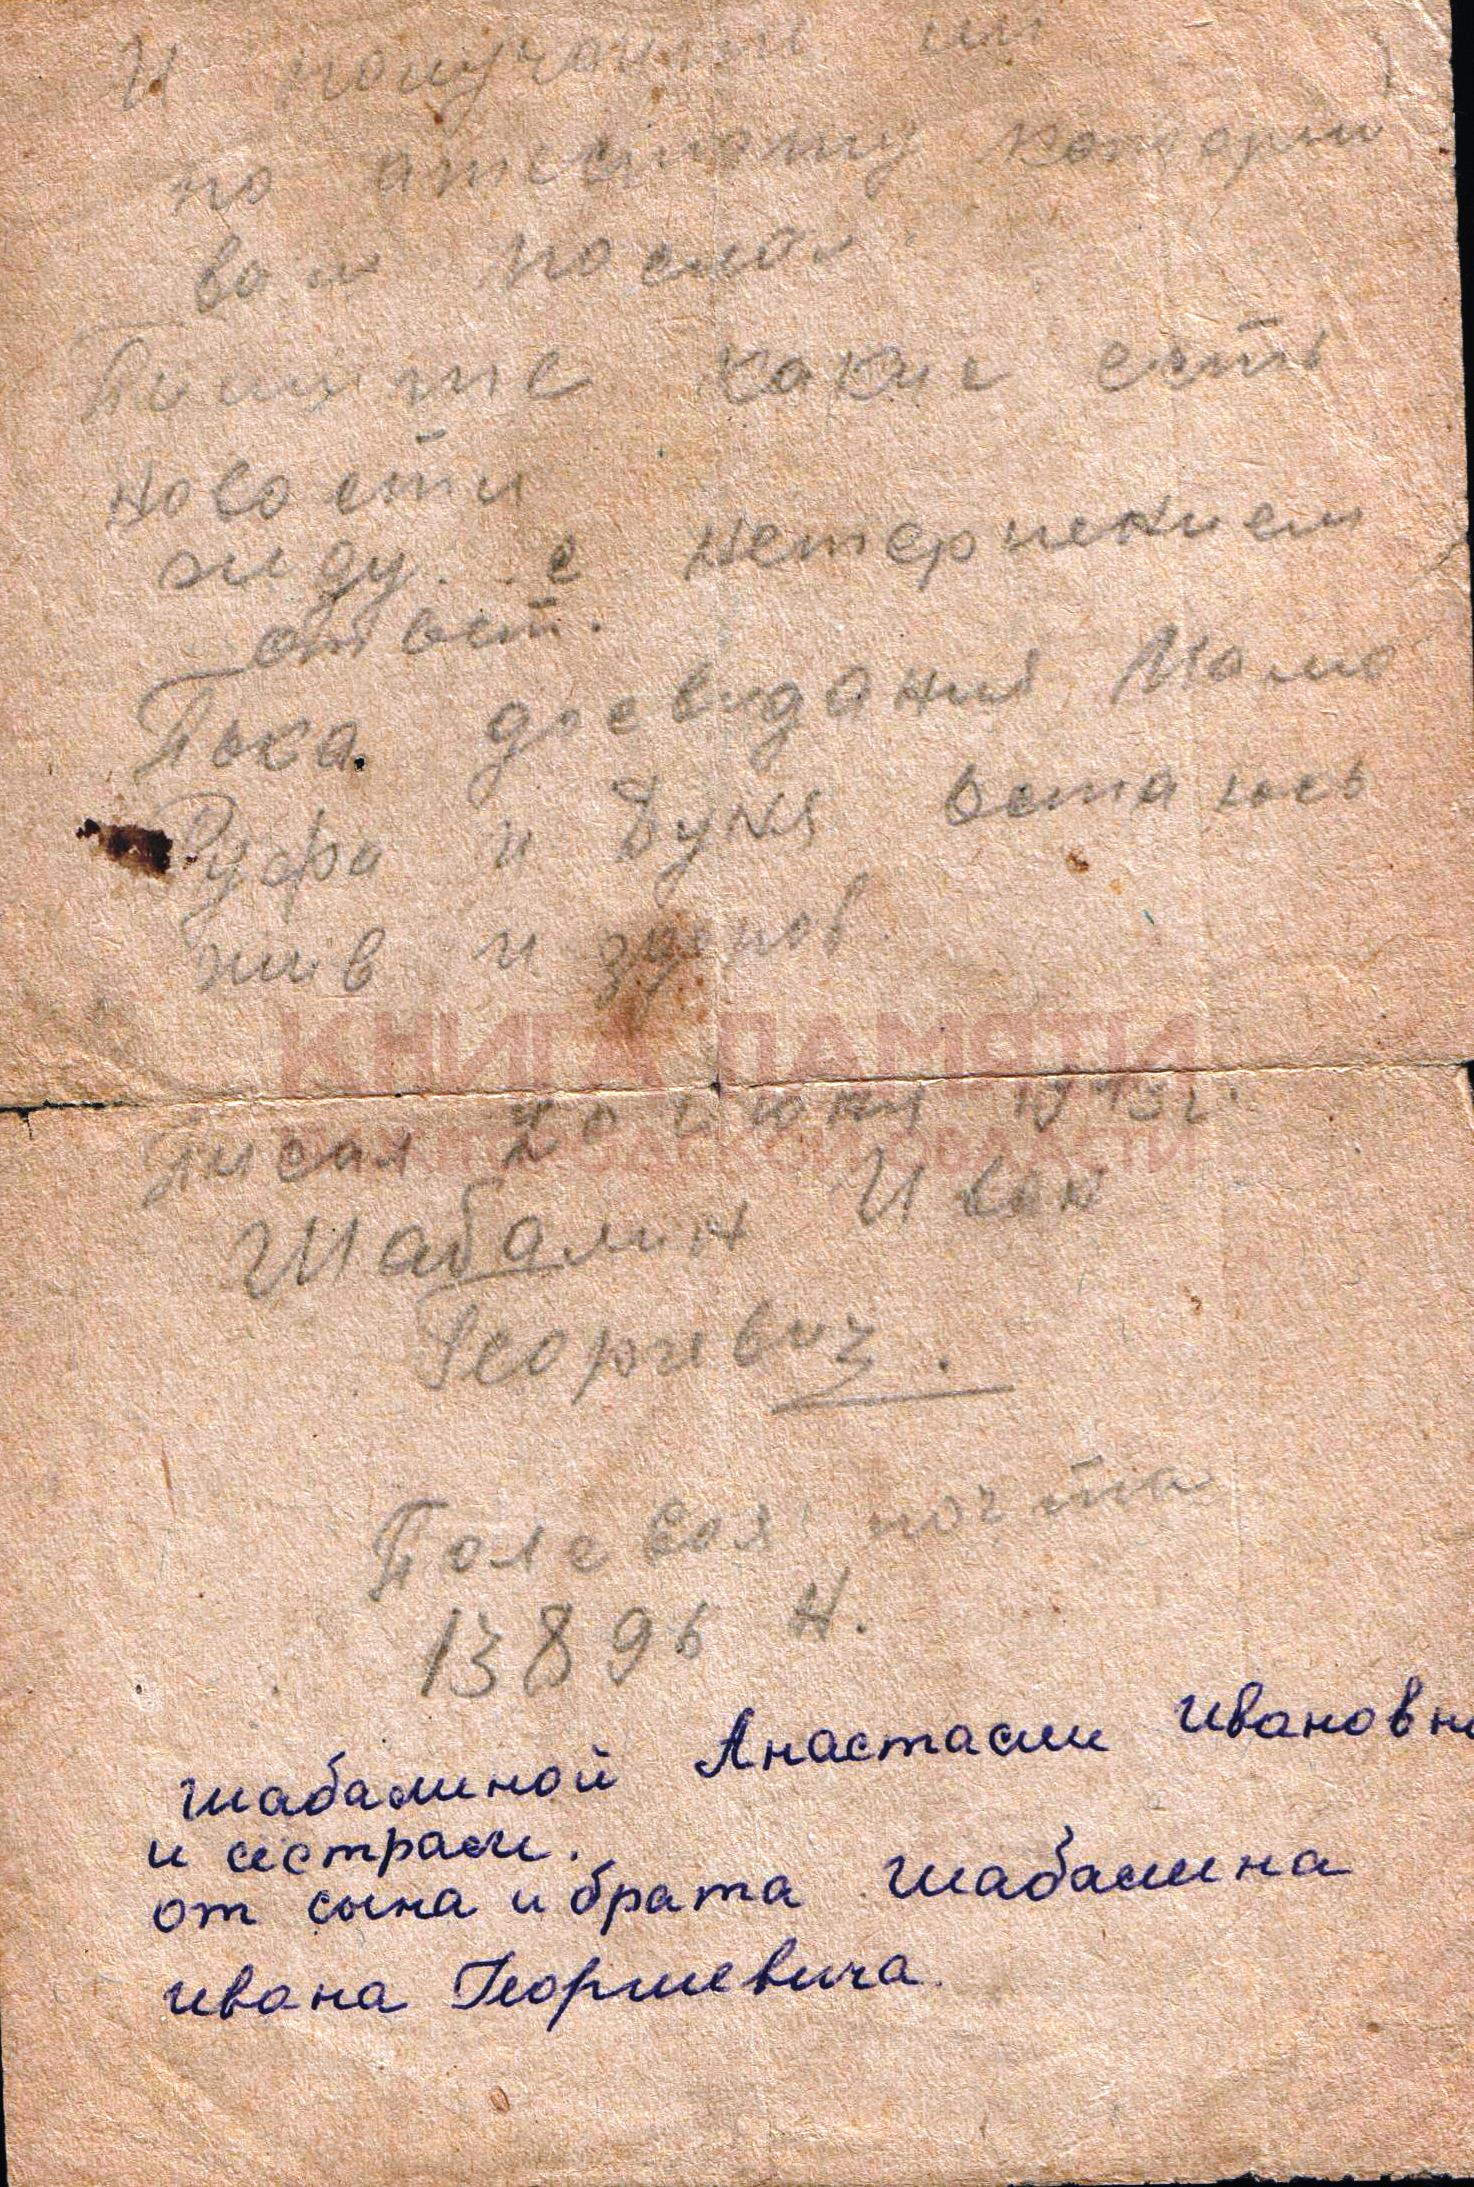 И получаите ли
по атестату которы
вам послал.
Пишите какие есть
новости
жду. с нетерпением
ответ.
Пока. досвидания Мама
Руфа и Дуня остаюсь
жив и здоров.
КНИГА ПАМЯТИ
Писал 20 июня 1943 г.
Шабалин Иван
Георгевич.
Полевая почта
13896 Н.
Шабалиной Анастасии Ивановн
и сестрам.
от сына и брата Шабалина
Ивана Георгиевича.